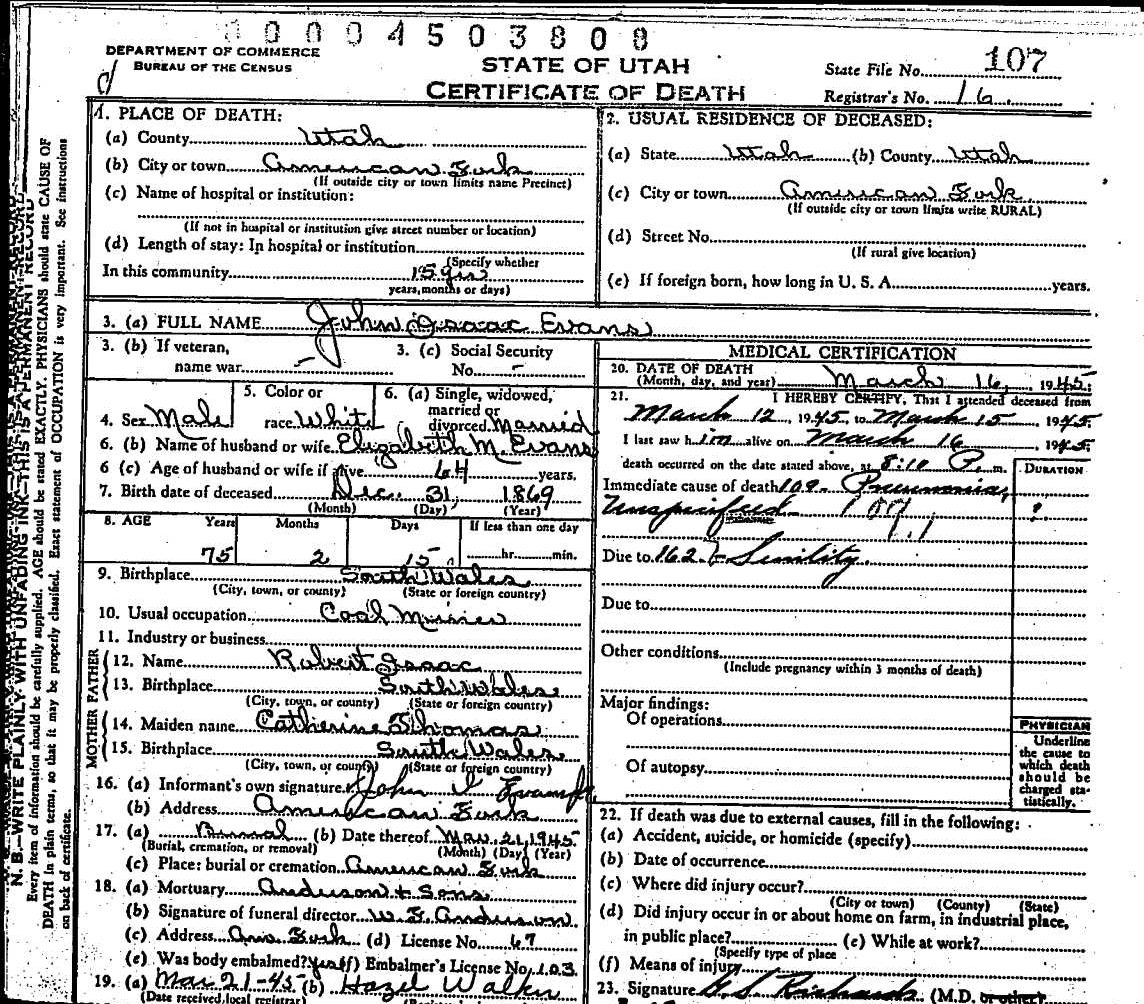 0 0 0 4 5 0 3 8 0 8
DEPARTMENT OF COMMERCE
BUREAU OF THE CENSUS
STATE OF UTAH
CERTIFICATE OF DEATH
State File No. 107
Registrar's No. 16
1. PLACE OF DEATH:
(a) County Utah
(b) City or town American Fork
(If outside city or town limits name Precinct)
(c) Name of hospital or institution:
(If not in hospital or institution give street number or location)
(d) Length of stay: In hospital or institution
(Specify whether
In this community 15 yrs
years, months or days)
2. USUAL RESIDENCE OF DECEASED:
(a) State Utah (b) County Utah
(c) City or town American Fork
(If outside city or town limits write RURAL)
(d) Street No.
(If rural give location)
(e) If foreign born, how long in U. S. A. years.
3. (a) FULL NAME John Isaac Evans
3. (b) If veteran,
name war –
3. (c) Social Security
No. –
4. Sex Male
5. Color or
race White
6. (a) Single, widowed,
married or
divorced Married
6. (b) Name of husband or wife Elizabeth M. Evans
6 (c) Age of husband or wife if alive 64 years.
7. Birth date of deceased Dec. 31, 1869
(Month) (Day) (Year)
8. AGE Years Months Days If less than one day
75 2 15 hr. min.
9. Birthplace South Wales
(City, town, or county) (State or foreign country)
10. Usual occupation Coal Miner
11. Industry or business
FATHER
12. Name Robert Isaac
13. Birthplace South Wales
(City, town, or county) (State or foreign country)
MOTHER
14. Maiden name Catherine Thomas
15. Birthplace South Wales
(City, town, or county) (State or foreign country)
16. (a) Informant's own signature John I Evans Jr
(b) Address American Fork
17. (a) Burial (b) Date thereof Mar. 21, 1945
(Burial, cremation, or removal) (Month) (Day) (Year)
(c) Place: burial or cremation American Fork
18. (a) Mortuary Anderson & Sons
(b) Signature of funeral director W. F. Anderson
(c) Address Am. Fork (d) License No. 67
(e) Was body embalmed? Yes (f) Embalmer's License No. 103
19. (a) Mar 21-45 (b) Hazel Walker
(Date received local registrar)
MEDICAL CERTIFICATION
20. DATE OF DEATH
(Month, day, and year) March 16, 1945
21. I HEREBY CERTIFY, That I attended deceased from
March 12, 1945, to March 15 1945
I last saw him alive on March 16 1945
death occurred on the date stated above, at 8:10 P. m.
DURATION
Immediate cause of death 109- Pneumonia,
Unspecified ?
Due to 162 Senility.
Due to
Other conditions
(Include pregnancy within 3 months of death)
Major findings:
Of operations
Of autopsy
PHYSICIAN
Underline
the cause to
which death
should be
charged sta-
tistically.
22. If death was due to external causes, fill in the following:
(a) Accident, suicide, or homicide (specify)
(b) Date of occurrence
(c) Where did injury occur?
(City or town) (County) (State)
(d) Did injury occur in or about home on farm, in industrial place,
in public place? (e) While at work?
(Specify type of place
(f) Means of injury
23. Signature G S Richards (M.D. or other)
N. B.—WRITE PLAINLY WITH UNFADING INK—THIS IS A PERMANENT RECORD
Every item of information should be carefully supplied. AGE should be stated EXACTLY. PHYSICIANS should state CAUSE OF
DEATH in plain terms, so that it may be properly classified. Exact statement of OCCUPATION is very important. See instructions
on back of certificate.